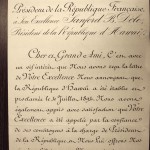 Président de la République Française,
à Son Excellence Sanford B. Dole
Président de la République d'Hawaï.
Cher et Grand Ami, C'est avec
que Nous avons reçu la lettre
Votre Excellence Nous annonçant que
la République d'Hawaï a été établie et
proclamée le 4 Juillet 1894. Nous avons
appris avec satisfaction que Votre
Excellence a été appelée par la confiance
de ses concitoyens à la charge de Président
de la République. Nous Lui offrons Nos